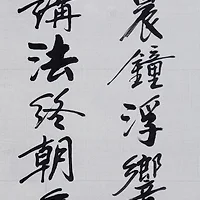 晨鐘浮響
講法終朝